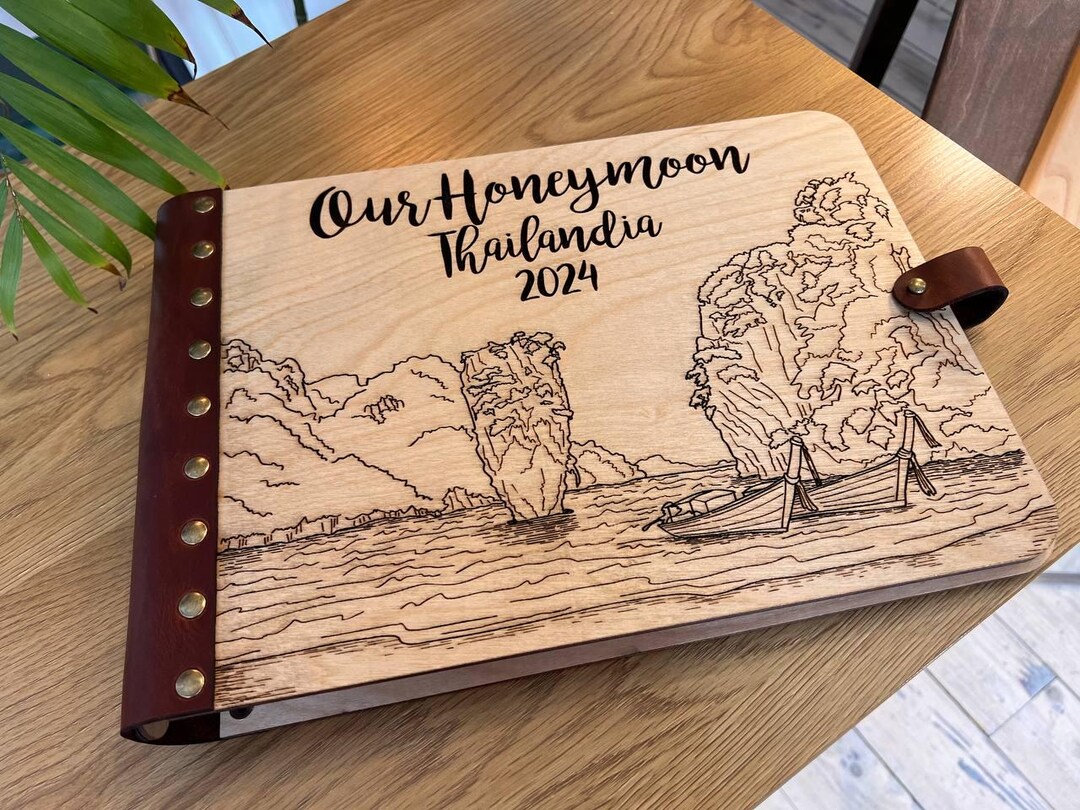 Our Honeymoon
Thailandia
2024